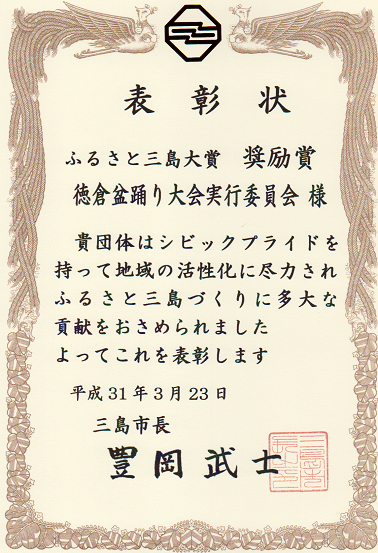 表彰状
ふるさと三島大賞 奨励賞
徳倉盆踊り大会実行委員会 様
貴団体はシビックプライドを
持って地域の活性化に尽力され
ふるさと三島づくりに多大な
貢献をおさめられました
よってこれを表彰します
平成31年3月23日
三島市長
豊岡武士